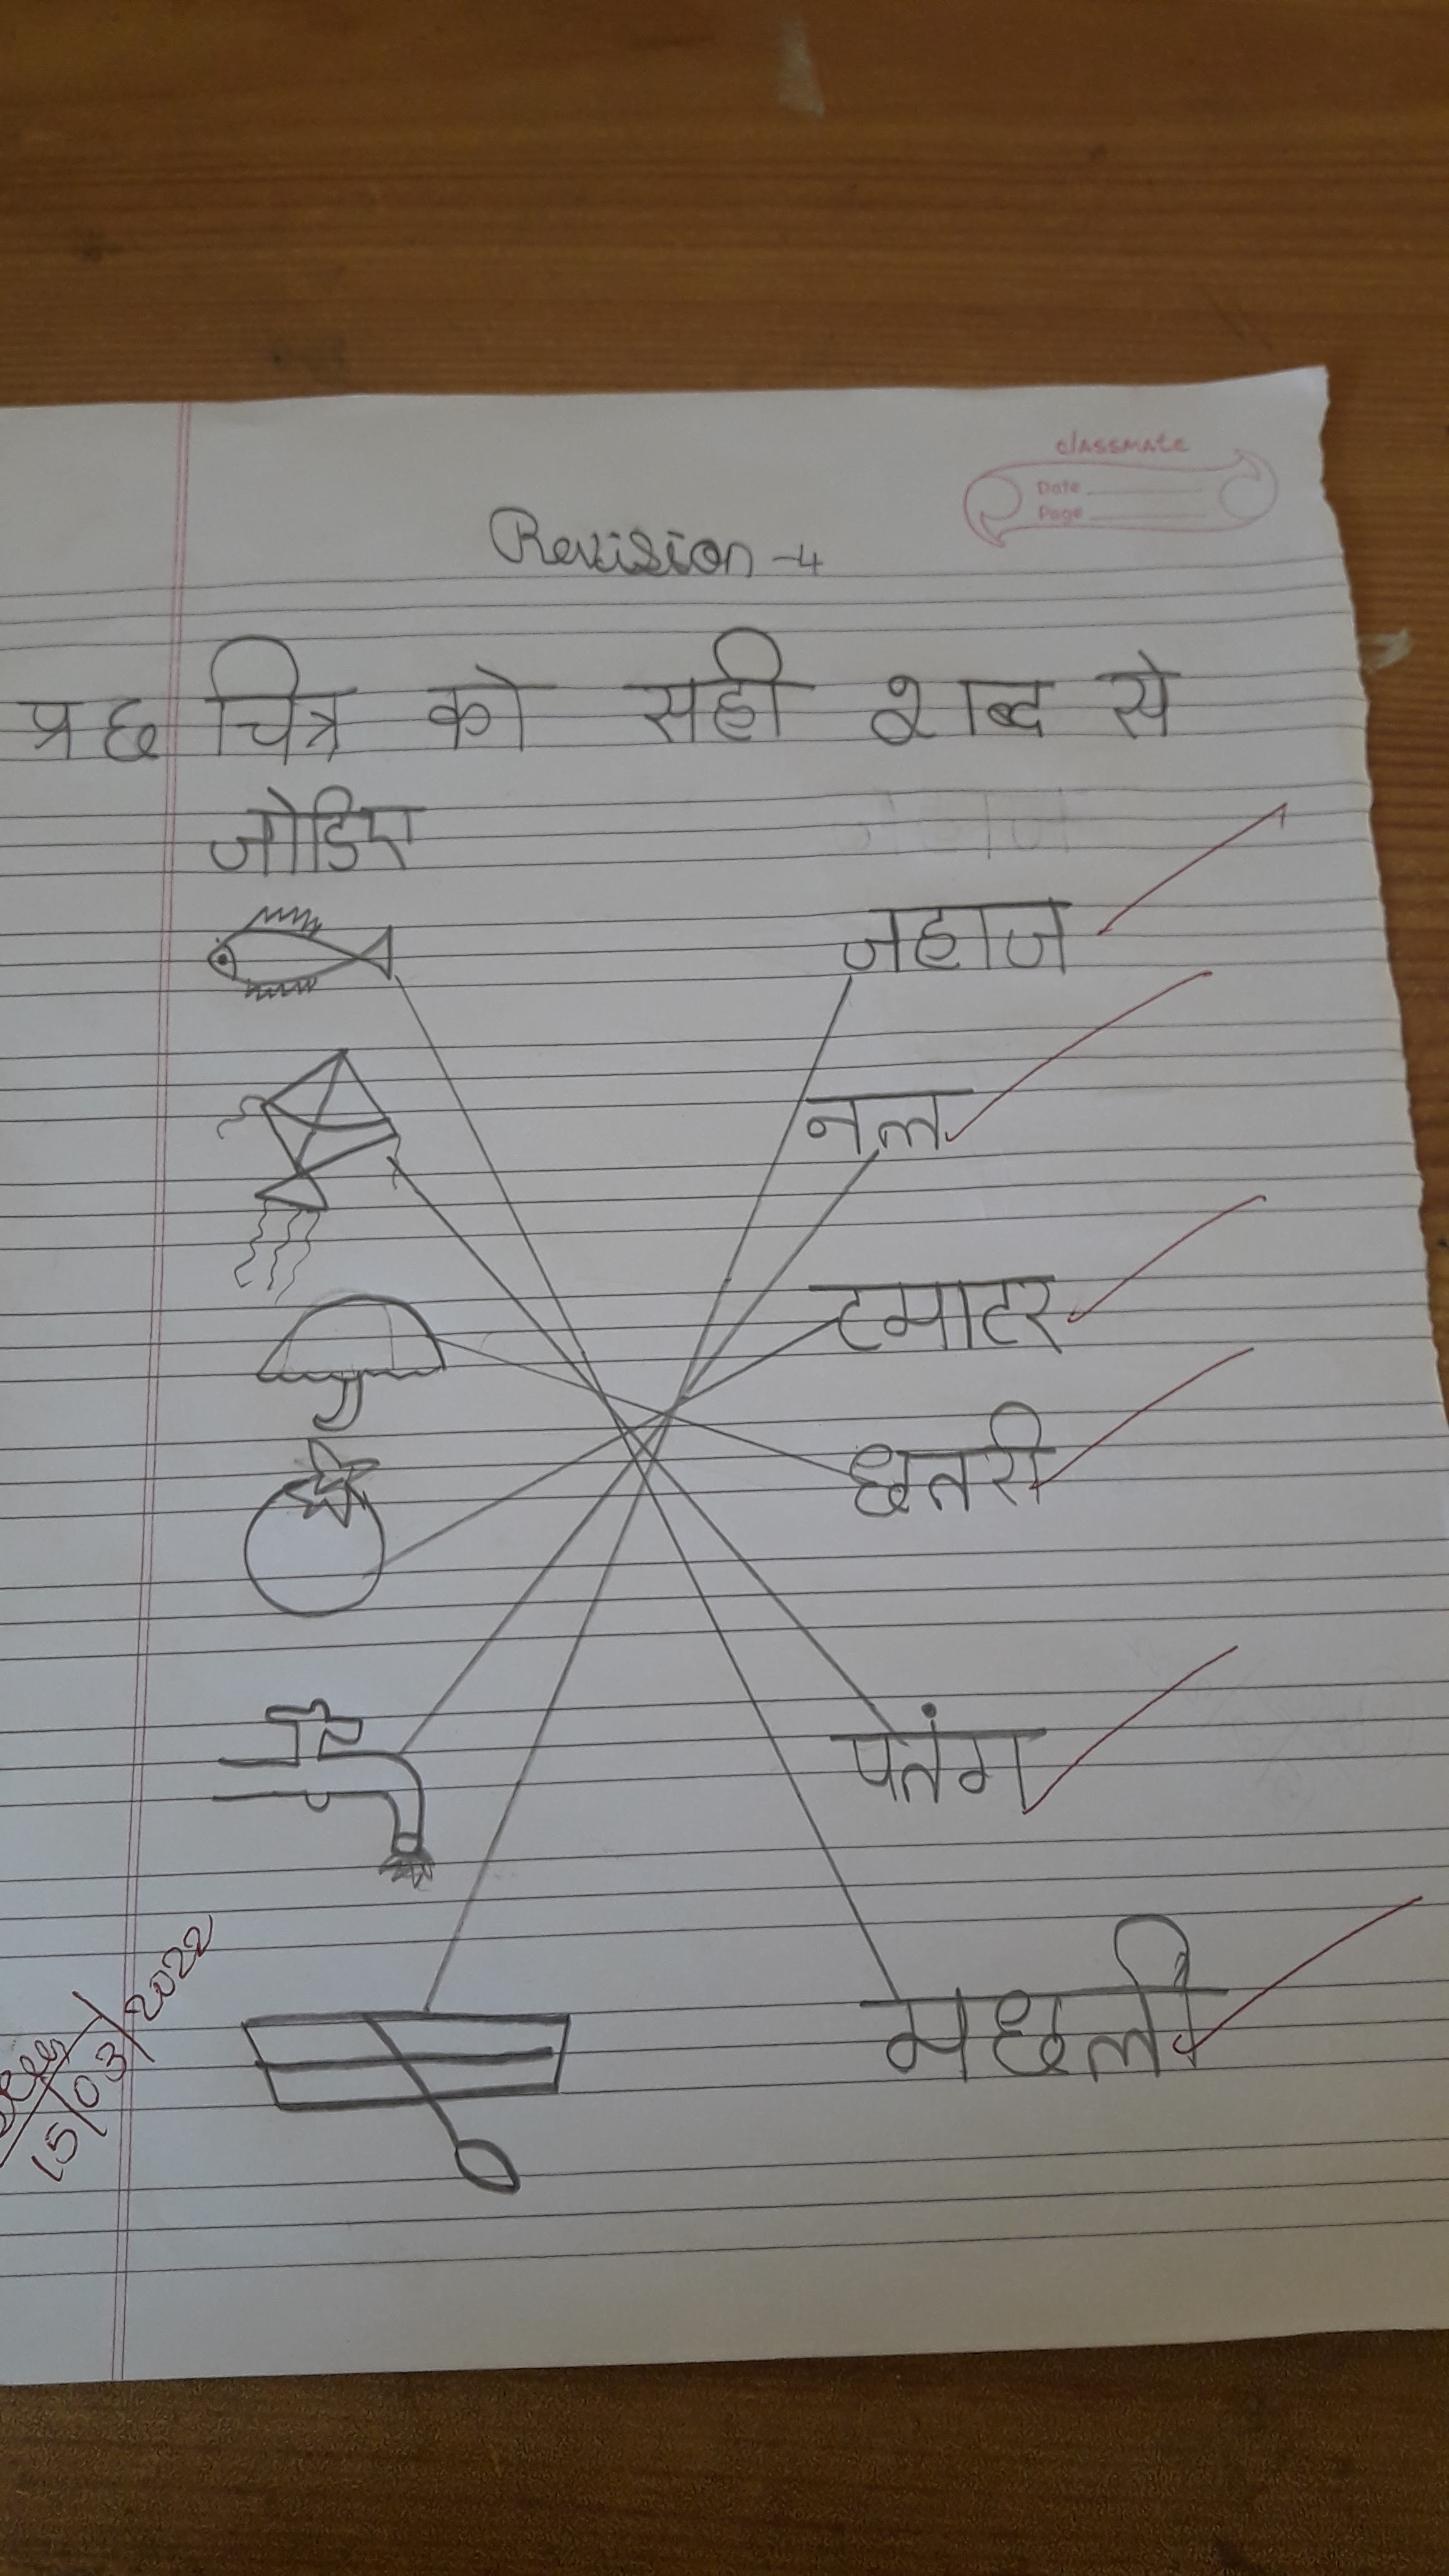 classmate
Date
Page
Revision -4
प्र छ चित्र को सही शब्द से
जोडिए
जहाज
नल
टमाटर
छतरी
पतंग
मछली
15/03/2022